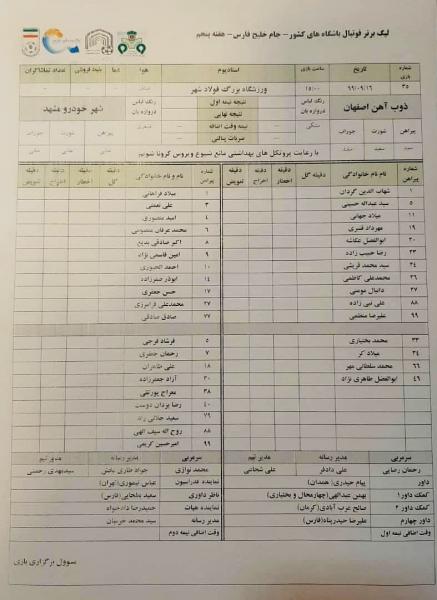 لیگ برتر فوتبال باشگاه های کشور - جام خلیج فارس - هفته پنجم
شماره بازی تاریخ ساعت بازی استادیوم هوا دما بلیت فروشی تعداد تماشاگران
۳۵ ۹۹/۰۹/۱۶ ۱۵:۰۰ ورزشگاه بزرگ فولاد شهر
ذوب آهن اصفهان رنگ لباس دروازه بان نتیجه نیمه اول رنگ لباس دروازه بان شهر خودرو مشهد
نتیجه نهایی
پیراهن شورت جوراب مشکی نیمه وقت اضافه پیراهن شورت جوراب
سفید سفید ضربات پنالتی
با رعایت پروتکل های بهداشتی مانع شیوع ویروس کرونا شویم
شماره پیراهن نام و نام خانوادگی دقیقه گل دقیقه اخطار دقیقه اخراج دقیقه تعویض شماره پیراهن نام و نام خانوادگی دقیقه گل دقیقه اخطار دقیقه اخراج دقیقه تعویض
۱ شهاب الدین گردان ۱ میلاد فراهانی
۵ سید عبداله حسینی ۳ علی نعمتی
۱۱ میلاد جهانی ۴ امید منصوری
۱۹ مهرداد قنبری ۶ محمد عرفان معصومی
۲۰ ابوالفضل عکاشه ۸ اکبر صادقی
۲۳ رضا حبیب زاده ۹ امین قاسمی نژاد
۲۴ سید محمد قریشی ۱۰ احمد الجبوری
۲۶ محمدعلی کاظمی ۱۴ ابوذر صفرزاده
۲۷ دانیال مومنی ۱۷ حسن جعفری
۸۸ علی نبی زاده ۲۷ محمدعلی فرامرزی
۹۹ علیرضا منظمی ۷۷ صادق صادقی
۳۳ محمد بختیاری ۵ فرشاد فرجی
۳۴ میلاد کر ۷ رحمان جعفری
۶۶ محمد سلطانی مهر ۱۸ علی طاهران
۴۹ ابوالفضل طاهری نژاد ۳۰ آزاد جعفرزاده
۳۸ معراج پورتقی
۴۰ رضا یزدان دوست
۷۹ سعید جلالی راد
۸۸ روح اله سیف الهی
۹۹ امیرحسین کریمی
سرمربی مدیر رسانه مدیر تیم سرمربی مدیر رسانه مدیر تیم
رحمان رضایی علی دادفر علی شجاعی محمد نوازی جواد سیدمهدی رحمتی
داور پیام حیدری (همدان) نماینده فدراسیون عباس تیموری (تهران)
کمک داور ۱ بهمن عبدالهی (چهارمحال و بختیاری) ناظر داوری سعید (فارس)
کمک داور ۲ صالح عرب آبادی (کرمان) نماینده هیات حمیدرضا دادخواه
داور چهارم علیرضا حیدرپناه (فارس) مدیر رسانه سید محمد
وقت اضافی نیمه اول وقت اضافی نیمه دوم
مسوول برگزاری بازی